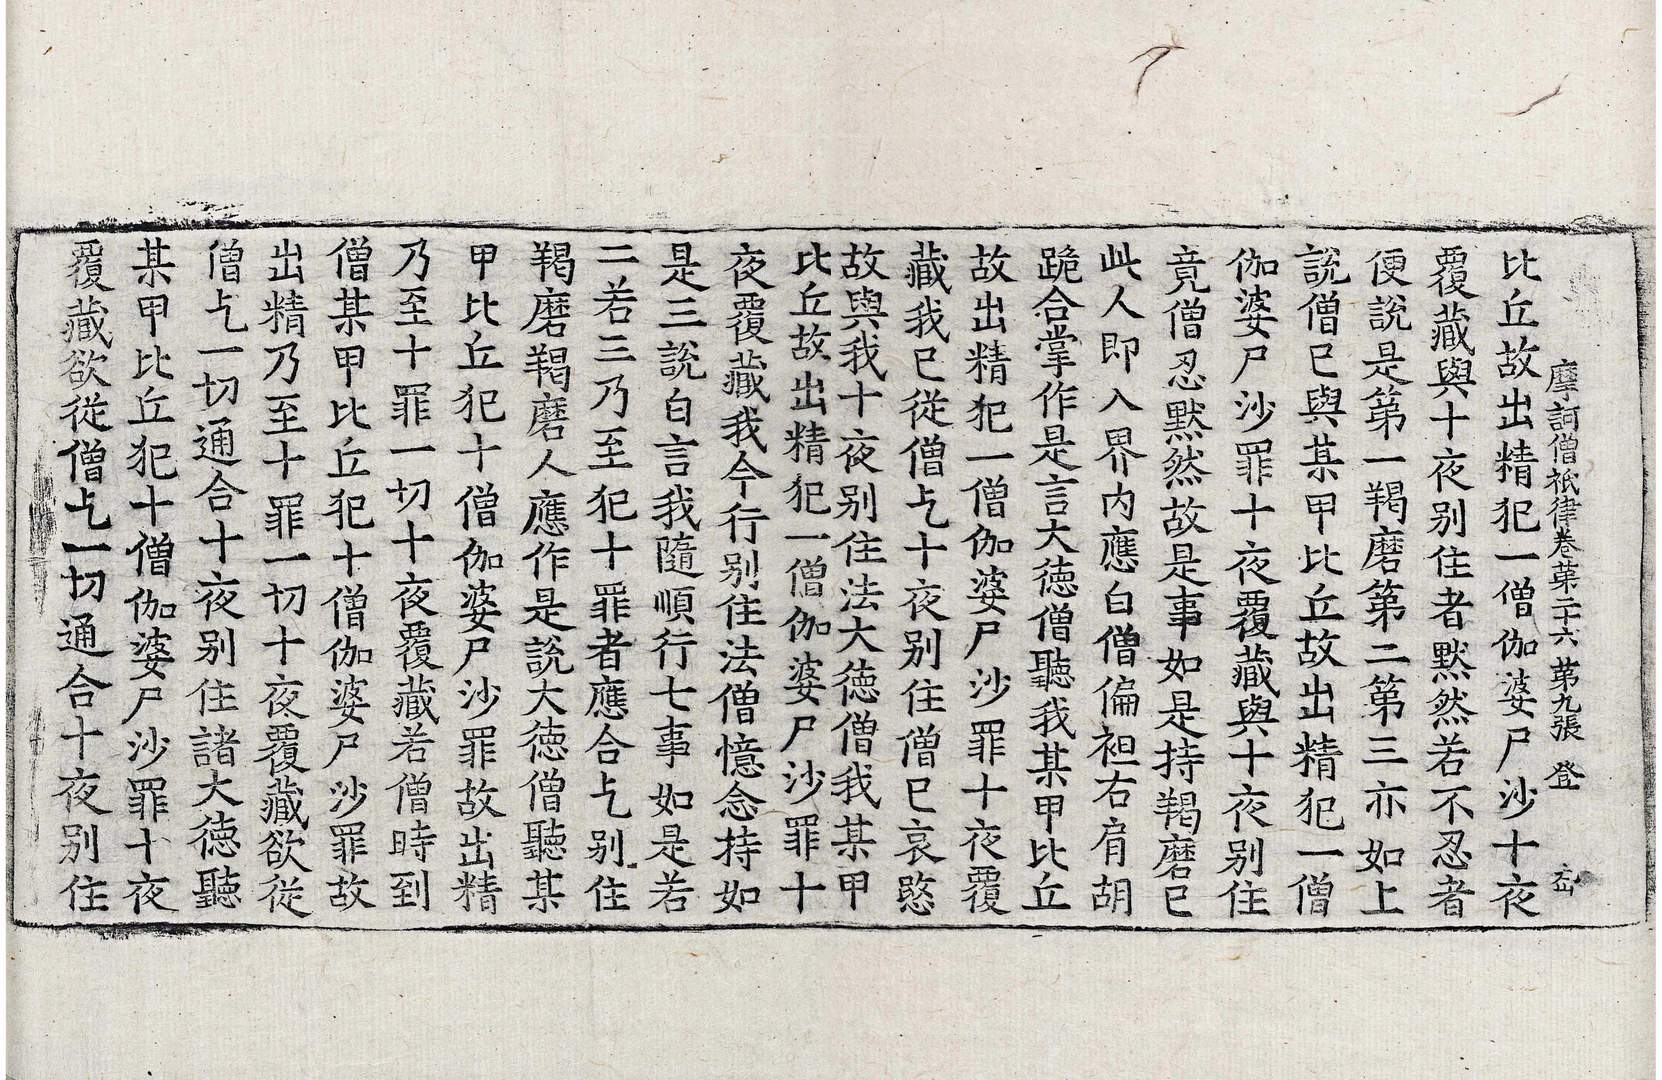 摩訶僧祇律卷第二十六　第九張　登
比丘故出精犯一僧伽婆尸沙十夜
覆藏與十夜别住者默然若不忍者
便說是第一羯磨第二第三亦如上
說僧已與某甲比丘故出精犯一僧
伽婆尸沙罪十夜覆藏與十夜别住
竟僧忍默然故是事如是持羯磨已
此人即入界内應白僧偏袒右肩胡
跪合掌作是言大德僧聽我某甲比丘
故出精犯一僧伽婆尸沙罪十夜覆
藏我已從僧乞十夜别住僧已哀愍
故與我十夜别住法大德僧我某甲
比丘故出精犯一僧伽婆尸沙罪十
夜覆藏我今行别住法僧憶念持如
是三說白言我隨順行七事如是若
二若三乃至犯十罪者應合乞别住
羯磨羯磨人應作是說大德僧聽某
甲比丘犯十僧伽婆尸沙罪故出精
乃至十罪一切十夜覆藏若僧時到
僧某甲比丘犯十僧伽婆尸沙罪故
出精乃至十罪一切十夜覆藏欲從
僧乞一切通合十夜别住諸大德聽
某甲比丘犯十僧伽婆尸沙罪十夜
覆藏欲從僧乞一切通合十夜别住